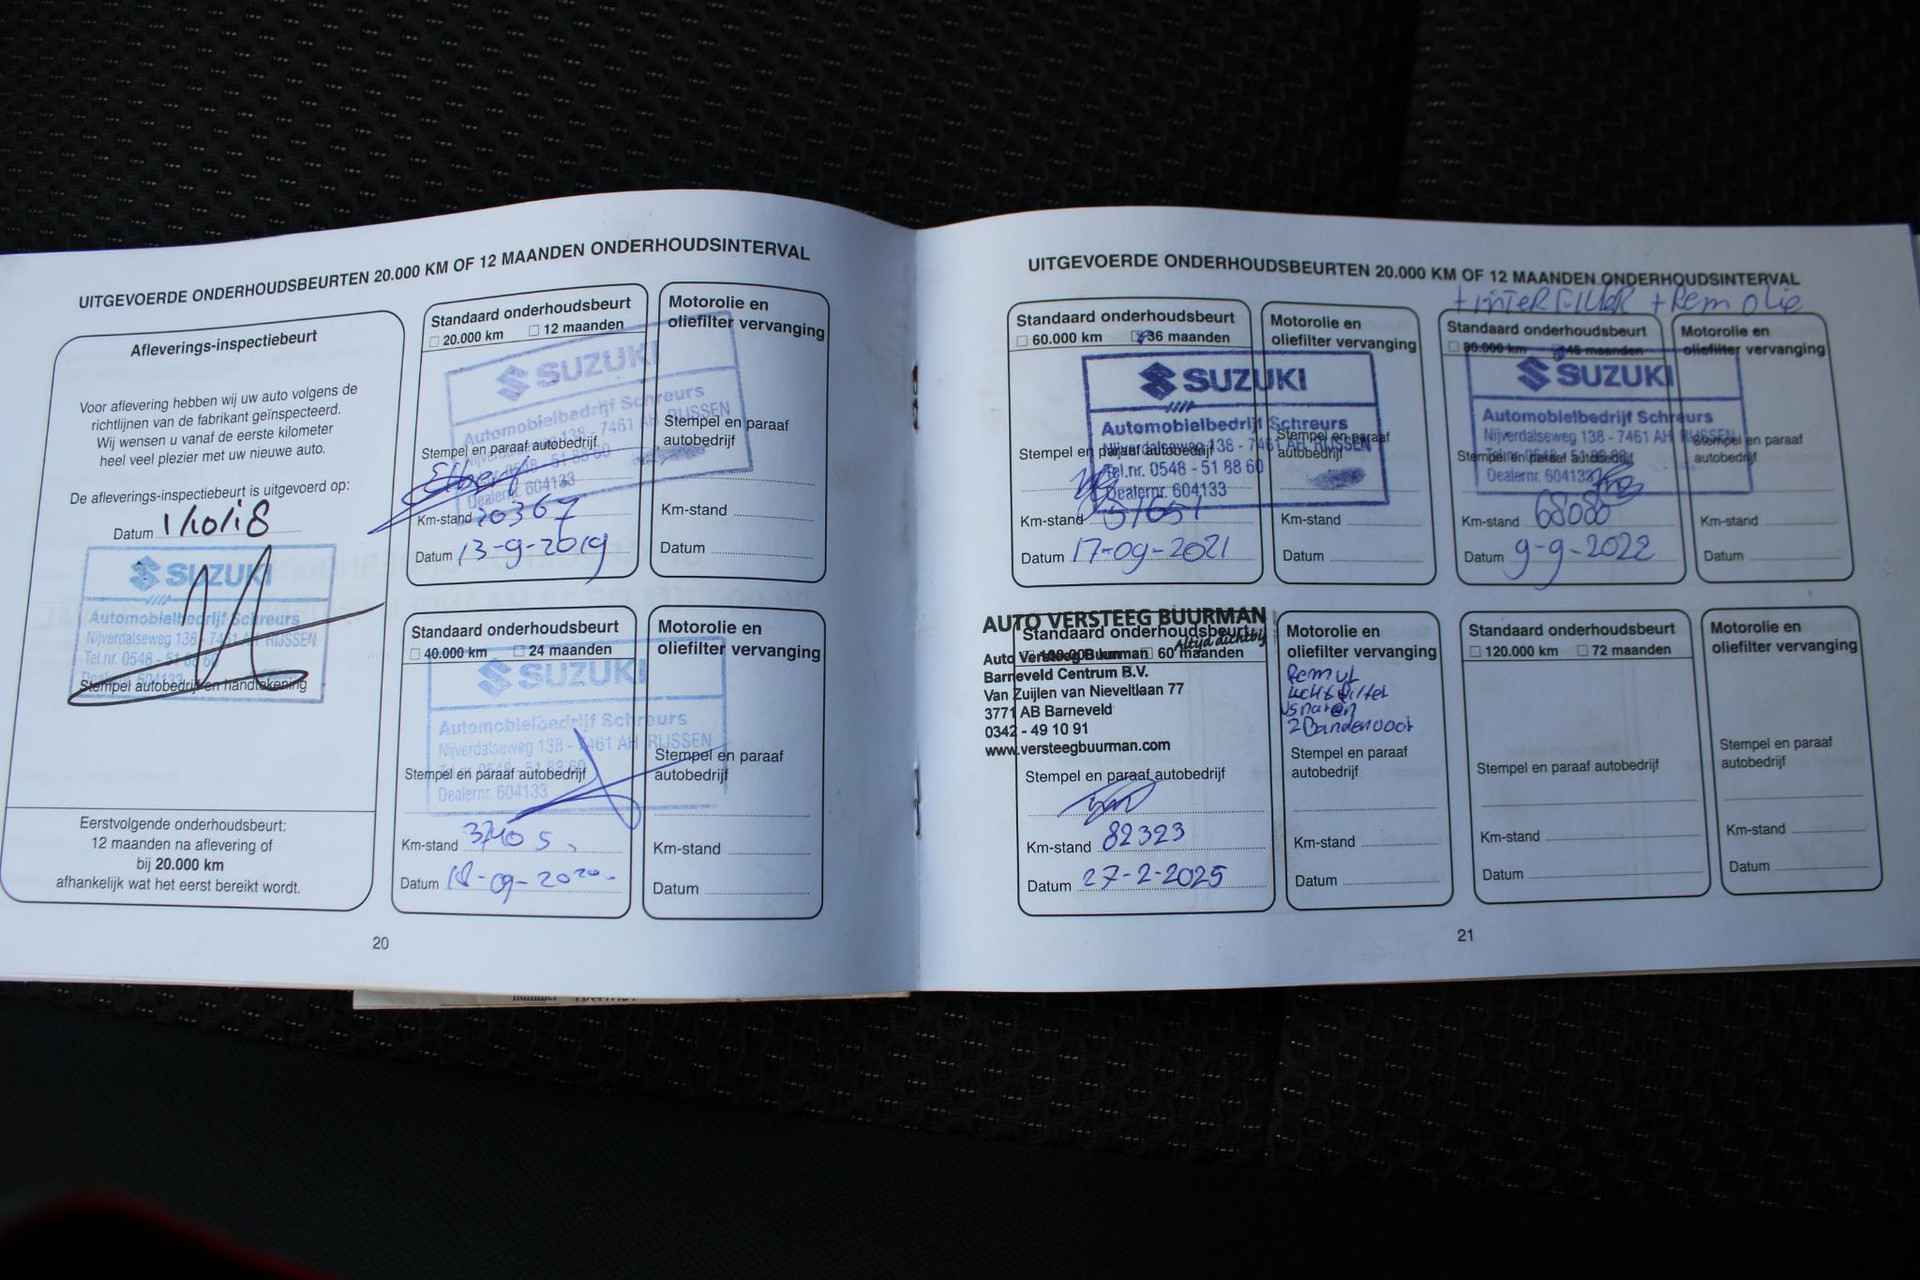 UITGEVOERDE ONDERHOUDSBEURTEN 20.000 KM OF 12 MAANDEN ONDERHOUDSINTERVAL
Afleverings-inspectiebeurt
Voor aflevering hebben wij uw auto volgens de
richtlijnen van de fabrikant geïnspecteerd.
Wij wensen u vanaf de eerste kilometer
heel veel plezier met uw nieuwe auto.
De afleverings-inspectiebeurt is uitgevoerd op:
Datum 1/10/18
SUZUKI
Automobielbedrijf Schreurs
Nijverdalseweg 138 - 7461 AH RIJSSEN
Tel.nr. 0548 - 51 88 60
Stempel autobedrijf en handtekening
Eerstvolgende onderhoudsbeurt:
12 maanden na aflevering of
bij 20.000 km
afhankelijk wat het eerst bereikt wordt.
Standaard onderhoudsbeurt
20.000 km 12 maanden
SUZUKI
Automobielbedrijf Schreurs
138 - 7461 AH RIJSSEN
Stempel en paraaf autobedrijf
0548 - 51 88 60
Dealernr. 604133
Km-stand 20367
Datum 13-9-2019
Motorolie en
oliefilter vervanging
Stempel en paraaf
autobedrijf
Km-stand
Datum
Standaard onderhoudsbeurt
40.000 km 24 maanden
SUZUKI
Automobielbedrijf Schreurs
Nijverdalseweg 138 - 7461 AH RIJSSEN
Stempel en paraaf autobedrijf
Dealernr. 604133
Km-stand 37405
Datum 18-09-2020
Motorolie en
oliefilter vervanging
Stempel en paraaf
autobedrijf
Km-stand
Datum
20
UITGEVOERDE ONDERHOUDSBEURTEN 20.000 KM OF 12 MAANDEN ONDERHOUDSINTERVAL
Standaard onderhoudsbeurt
60.000 km 36 maanden
SUZUKI
Automobielbedrijf Schreurs
Nijverdalseweg 138 - 7461 AH RIJSSEN
Stempel en paraaf autobedrijf
Tel.nr. 0548 - 51 88 60
Dealernr. 604133
Km-stand 51651
Datum 17-09-2021
Motorolie en
oliefilter vervanging
Stempel en paraaf
autobedrijf
Km-stand
Datum
+ interfiller + Remolie
Standaard onderhoudsbeurt
80.000 km 48 maanden
SUZUKI
Automobielbedrijf Schreurs
Nijverdalseweg 138 - 7461 AH RIJSSEN
Stempel en paraaf autobedrijf
Dealernr. 604133
Km-stand 68080
Datum 9-9-2022
Motorolie en
oliefilter vervanging
Stempel en paraaf
autobedrijf
Km-stand
Datum
AUTO VERSTEEG BUURMAN
Altijd dichtbij
Standaard onderhoudsbeurt
100.000 km 60 maanden
Auto Versteeg Buurman
Barneveld Centrum B.V.
Van Zuijlen van Nieveltlaan 77
3771 AB Barneveld
0342 - 49 10 91
www.versteegbuurman.com
Stempel en paraaf autobedrijf
Km-stand 82323
Datum 27-2-2025
Motorolie en
oliefilter vervanging
Remvl
Luchtfilter
snaren
2 Banden voor
Stempel en paraaf
autobedrijf
Km-stand
Datum
Standaard onderhoudsbeurt
120.000 km 72 maanden
Stempel en paraaf autobedrijf
Km-stand
Datum
Motorolie en
oliefilter vervanging
Stempel en paraaf
autobedrijf
Km-stand
Datum
21